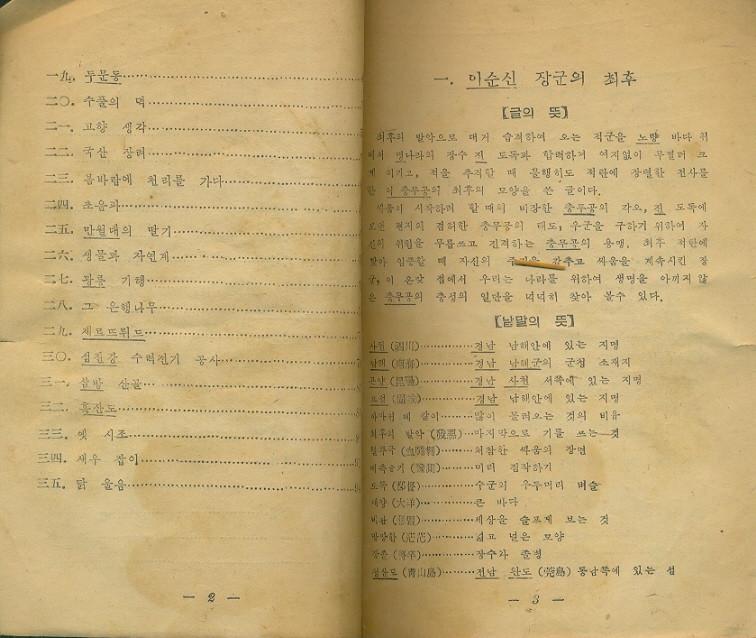 一九. 두문동
二〇. 수풀의 덕
二一. 고향 생각
二二. 국산 장려
二三. 봄바람에 천리를 가다
二四. 초음파
二五. 만월대의 딸기
二六. 생물과 자연계
二七. 기행
二八. 그 은행나무
二九. 게르트뤼드
三〇. 섬진강 수력전기 공사
三一. 산골
三二.
三三. 옛 시조
三四. 새우 잡이
三五. 닭 울음
— 2 —
一. 이순신 장군의 최후
【글의 뜻】
최후의 발악으로 대거 습격하여 오는 적군을 노량 바다 위
에서 명나라의 장수 진 도독과 합력하여 여지없이 무찔러 크
게 이기고, 적을 추격할 때 불행히도 적탄에 장렬한 전사를
한 이 충무공의 최후의 모양을 쓴 글이다.
싸움이 시작하려 할 때의 비장한 충무공의 각오, 진 도독에
보낸 편지의 겸허한 충무공의 태도, 우군을 구하기 위하여 자
신의 위험을 무릅쓰고 진격하는 충무공의 용맹, 최후 적탄에
맞아 임종할 때 자신의 감추고 싸움을 계속시킨 장
군, 이 온갖 점에서 우리는 나라를 위하여 생명을 아끼지 않
은 충무공의 충성의 일단을 넉넉히 찾아 볼수 있다.
【낱말의 뜻】
사천 (泗川) 경남 남해안에 있는 지명
남해 (南海) 경남 남해군의 군청 소재지
곤양 (昆陽) 경남 사천 서쪽에 있는 지명
경남 남해안에 있는 지명
떼 같이 많이 몰려오는 것의 비유
최후의 발악 (發惡) 마지막으로 기를 쓰는 것
처참한 싸움의 장면
미리 짐작하기
도독 (都督) 수군의 우두머리 벼슬
대양 (大洋) 큰 바다
비관 (悲觀) 세상을 슬프게 보는 것
망망한 (茫茫) 넓고 넓은 모양
장졸 (將卒) 장수와 졸병
청산도 (靑山島) 전남 완도 (莞島) 동남쪽에 있는 섬
— 3 —